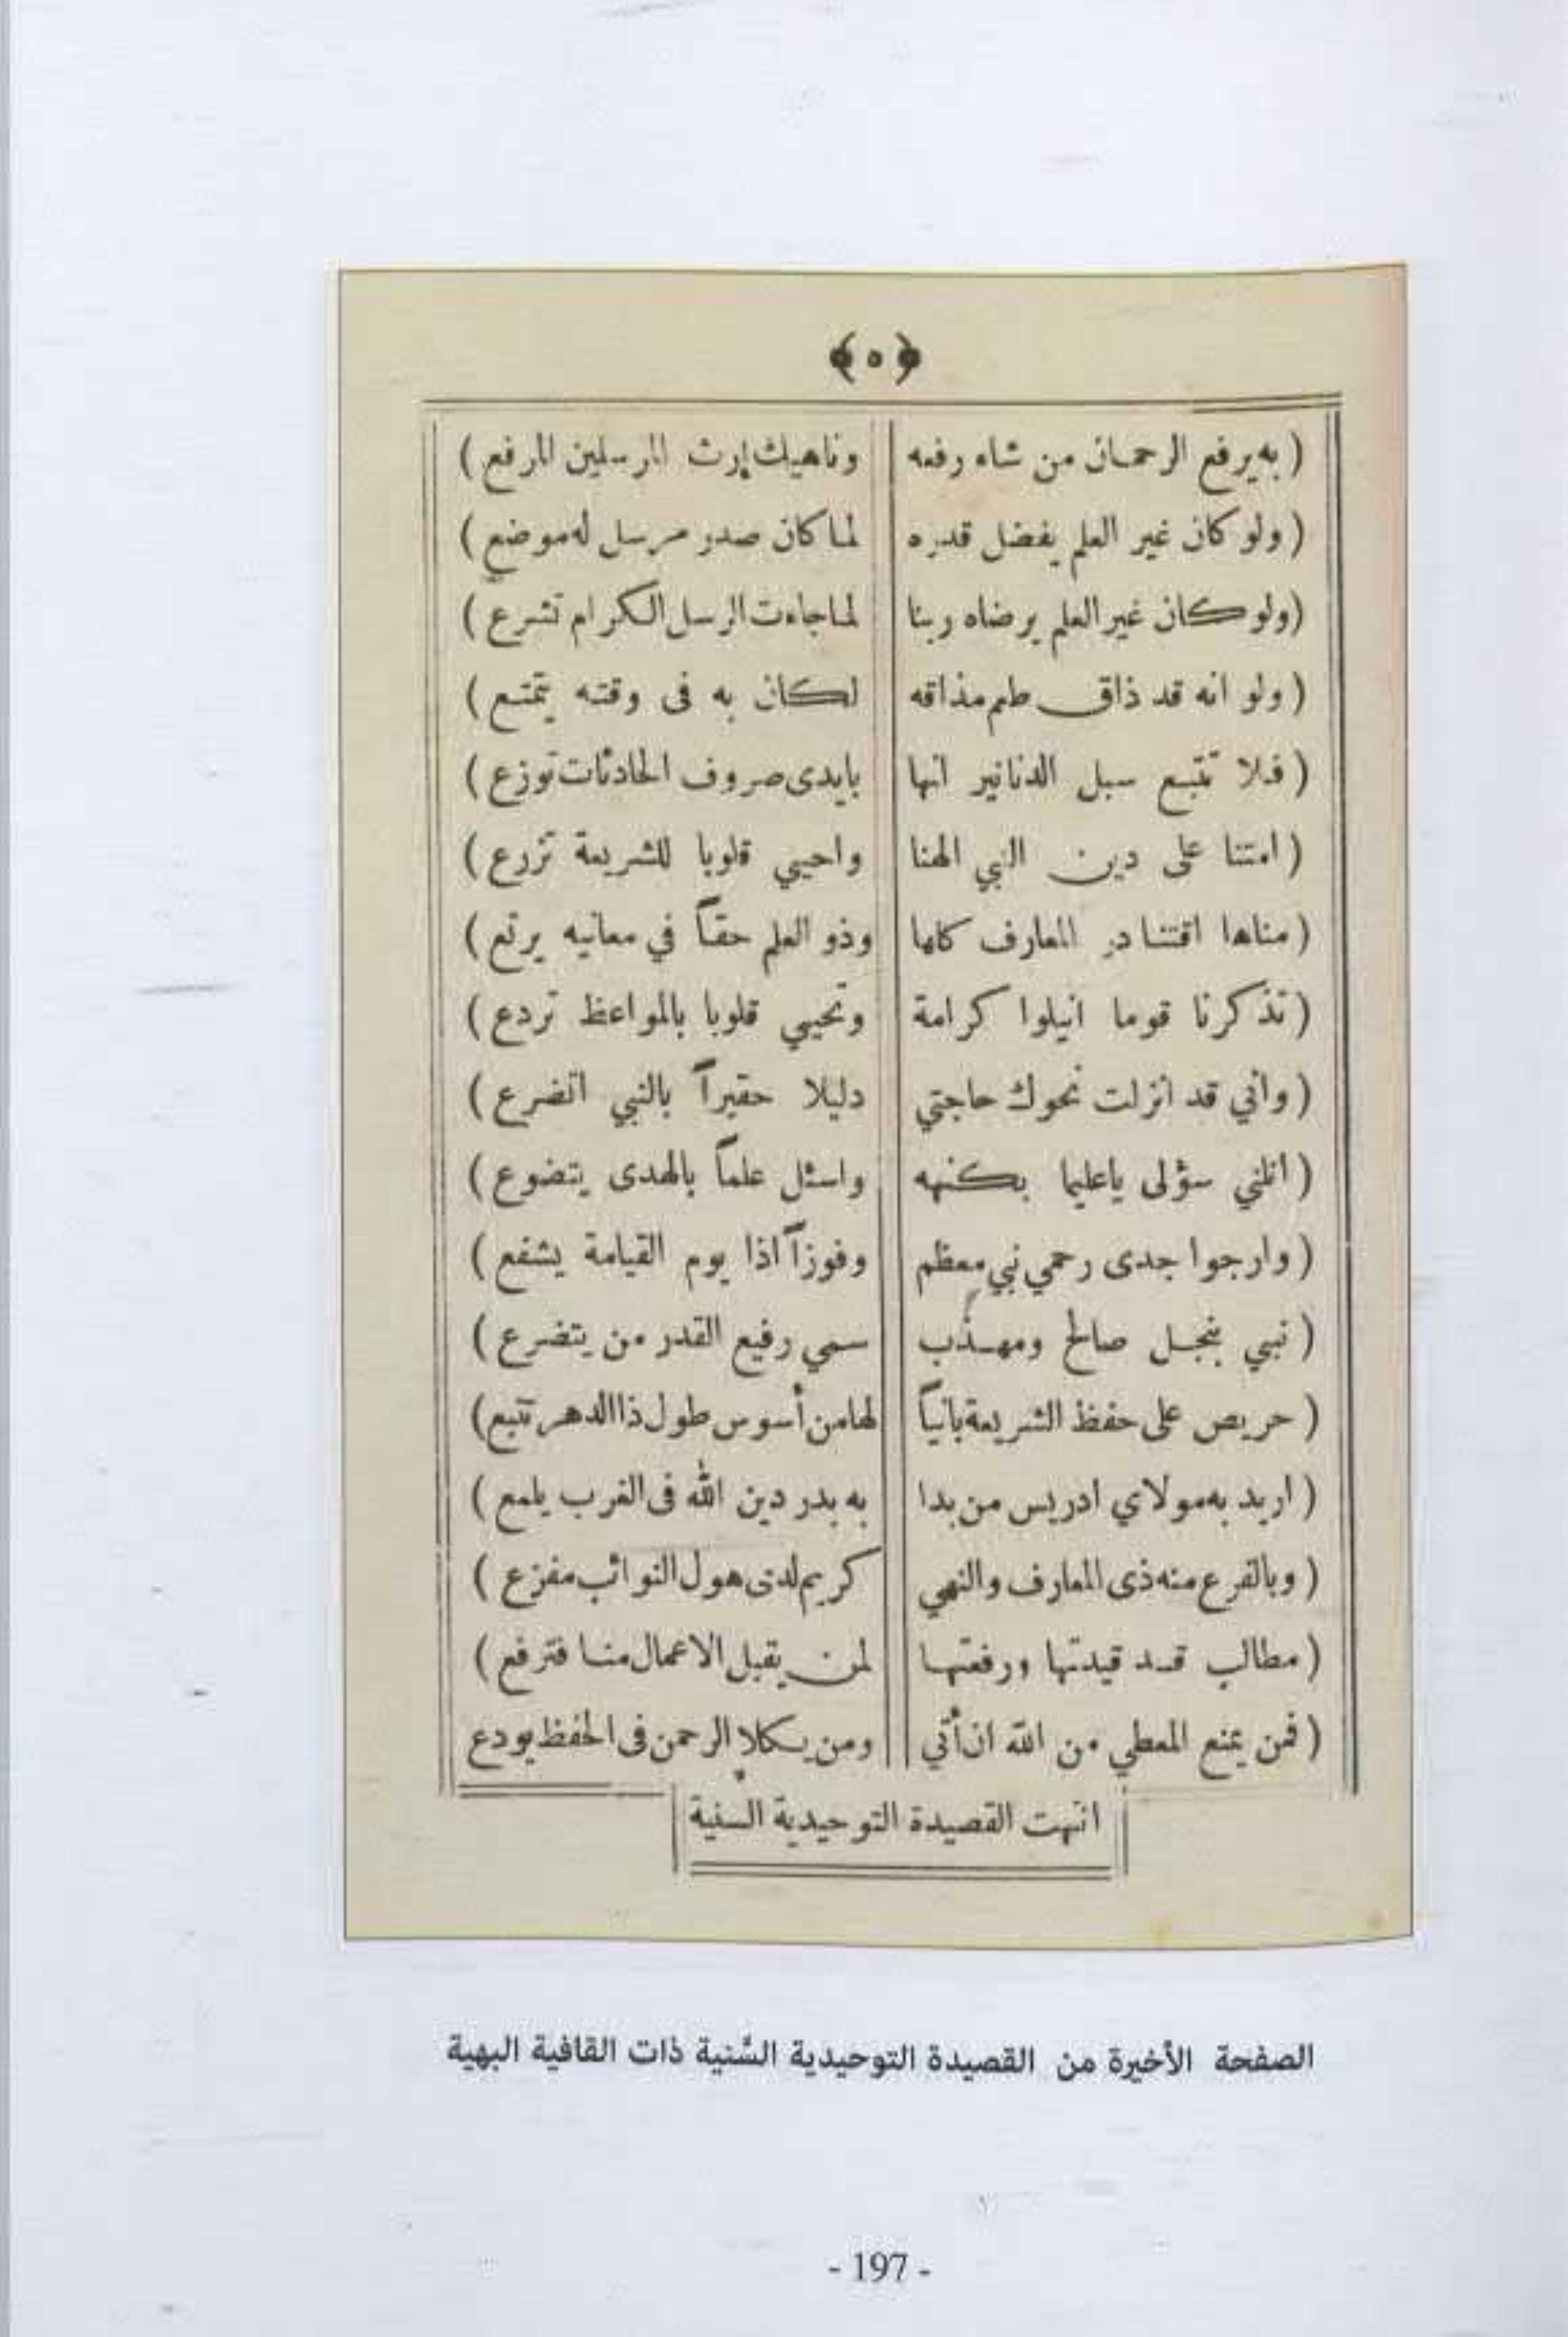 ﴿ ٥ ﴾
( به يرفع الرحمان من شاء رفعه وناهيك إرث المرسلين المرفع )
( ولو كان غير العلم يفضل قدره لما كان صدر مرسل له موضع )
( ولو كان غير العلم يرضاه ربنا لما جاءت الرسل الكرام تشرع )
( ولو انه قد ذاق طعم مذاقه لكان به فى وقته يتمتع )
( فلا تتبع سبل الدنانير انها بايدى صروف الحادثات توزع )
( امتنا على دين النبي الهنا واحيي قلوبا للشريعة تزرع )
( مناها اقتنا در المعارف كلها وذو العلم حقاً في معانيه يرتع )
( تذكرنا قوما انيلوا كرامة وتحيي قلوبا بالمواعظ تردع )
( واني قد انزلت نحوك حاجتي دليلا حقيراً بالنبي اتضرع )
( انلني سؤلى ياعليما بكنهه واسئل علماً بالهدى يتضوع )
( وارجوا جدى رحمي نبي معظم وفوزاً اذا يوم القيامة يشفع )
( نبي بنجل صالح ومهذب سمي رفيع القدر من يتضرع )
( حريص على حفظ الشريعة بانياً لها من أسوس طول ذا الدهر تتبع )
( اريد به مولاي ادريس من بدا به بدر دين الله فى الغرب يلمع )
( وبالفرع منه ذى المعارف والنهي كريم لدى هول النوائب مفزع )
( مطالب قد قيدتها ورفعتها لمن يقبل الاعمال منا فترفع )
( فمن يمنع المعطي من الله ان أتي ومن يكلإ الرحمن فى الحفظ يودع
انتهت القصيدة التوحيدية السنية
الصفحة الأخيرة من القصيدة التوحيدية السُّنية ذات القافية البهية
- 197 -